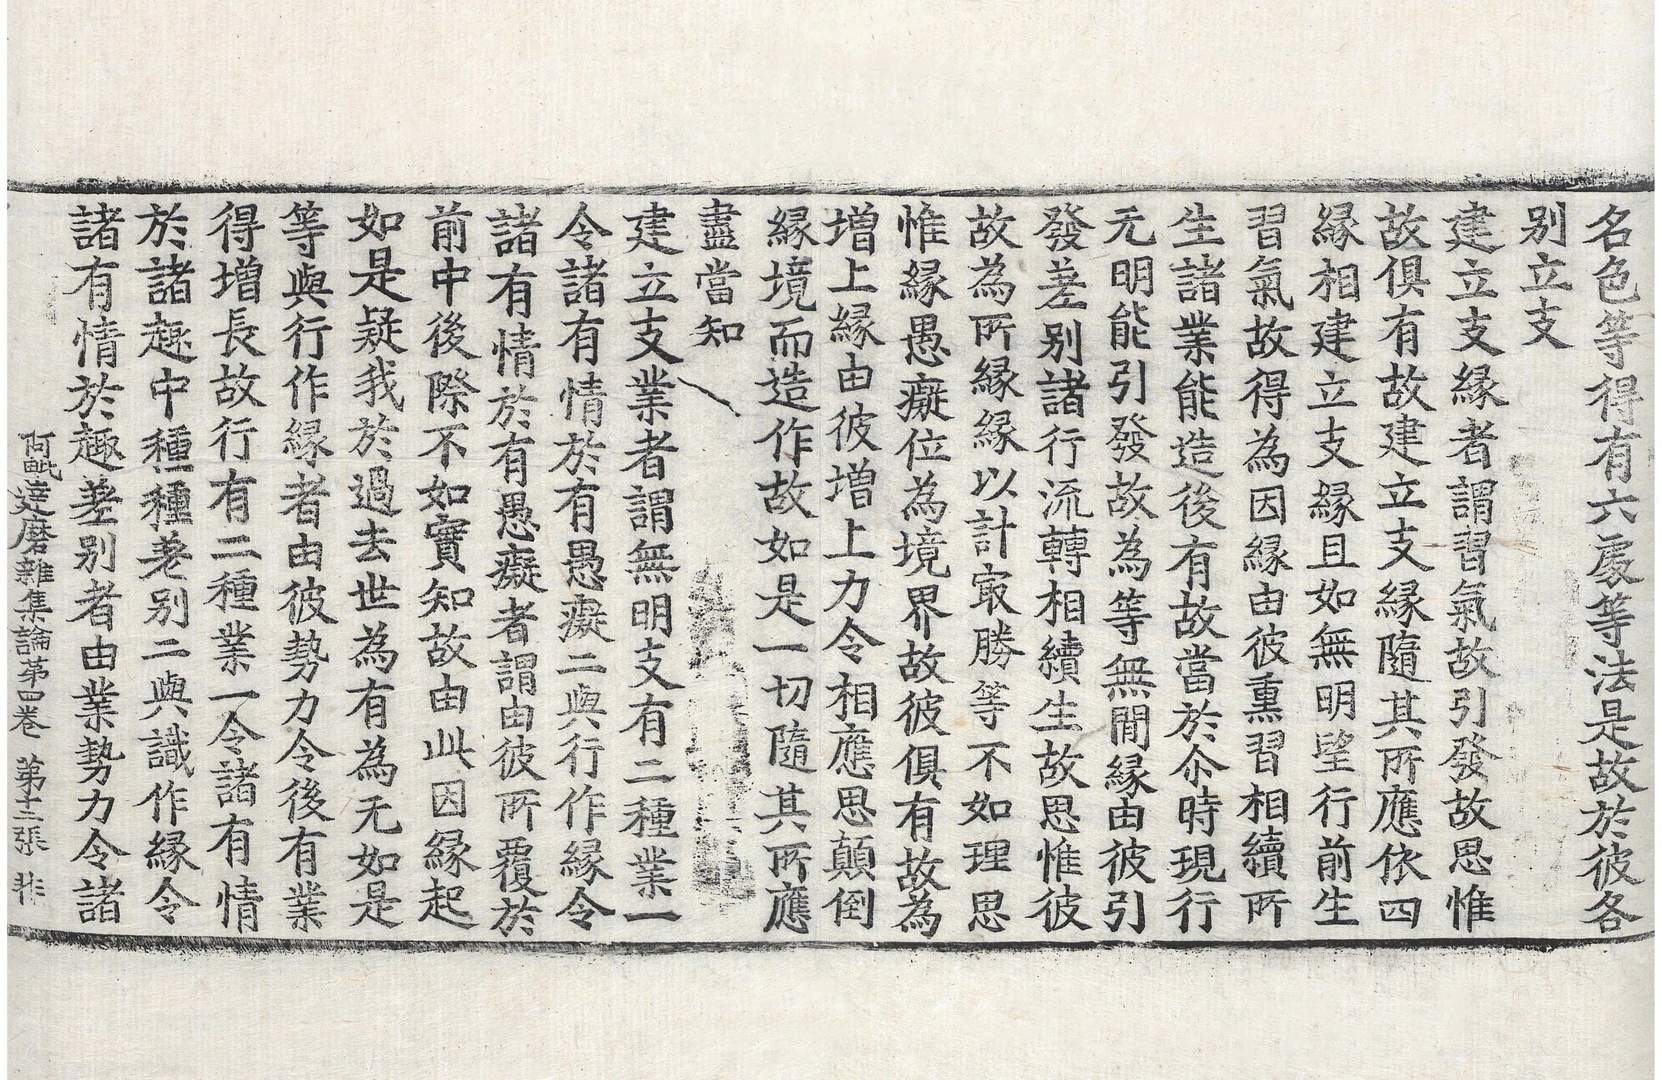 名色等得有六處等法是故於彼各
别立支
建立支縁者謂習氣故引發故思惟
故俱有故建立支縁隨其所應依四
縁相建立支縁且如無明望行前生
習氣故得為因縁由彼熏習相續所
生諸業能造後有故當於尒時現行
无明能引發故為等無間縁由彼引
發差别諸行流轉相續生故思惟彼
故為所縁縁以計㝡勝等不如理思
惟縁愚癡位為境界故彼俱有故為
增上縁由彼增上力令相應思顛倒
縁境而造作故如是一切隨其所應
盡當知
建立支業者謂無明支有二種業一
令諸有情於有愚癡二與行作縁令
諸有情於有愚癡者謂由彼所覆於
前中後際不如實知故由此因縁起
如是疑我於過去世為有為无如是
等與行作縁者由彼勢力令後有業
得增長故行有二種業一令諸有情
於諸趣中種種差别二與識作縁令
諸有情於趣差别者由業勢力令諸
阿毗達磨雜集論第四卷 第十二張 非